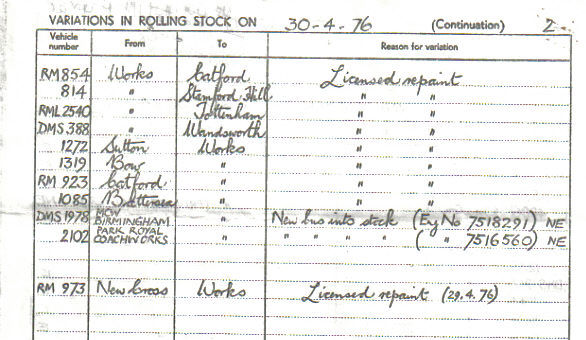 VARIATIONS IN ROLLING STOCK ON 30-4-76 (Continuation) 2
Vehicle number From To Reason for variation
RM854 Works Catford Licensed repaint
814 " Stamford Hill " "
RML2540 " Tottenham " "
DMS388 " Wandsworth " "
1272 Sutton Works " "
1319 Bow " " "
RM 923 Catford " " "
1085 Battersea " " "
DMS1978 MCW BIRMINGHAM " New bus into stock (Eng No 7518291) NE
2102 PARK ROYAL COACHWORKS " " " " " ( " 7516560) NE
RM 973 New Cross Works Licensed repaint (29.4.76)